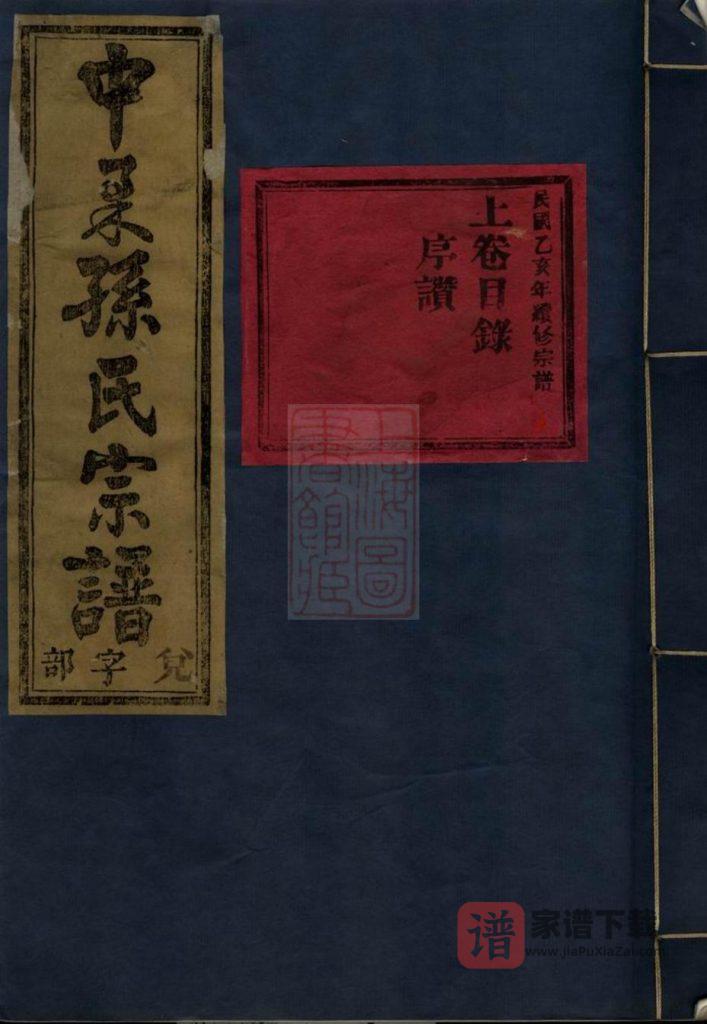 中孫氏宗譜
兌字部
民國乙亥年續修宗譜
上卷目錄
序讚
上海圖
書館藏
谱
家谱下载
www.jiaPuXiaZai.com